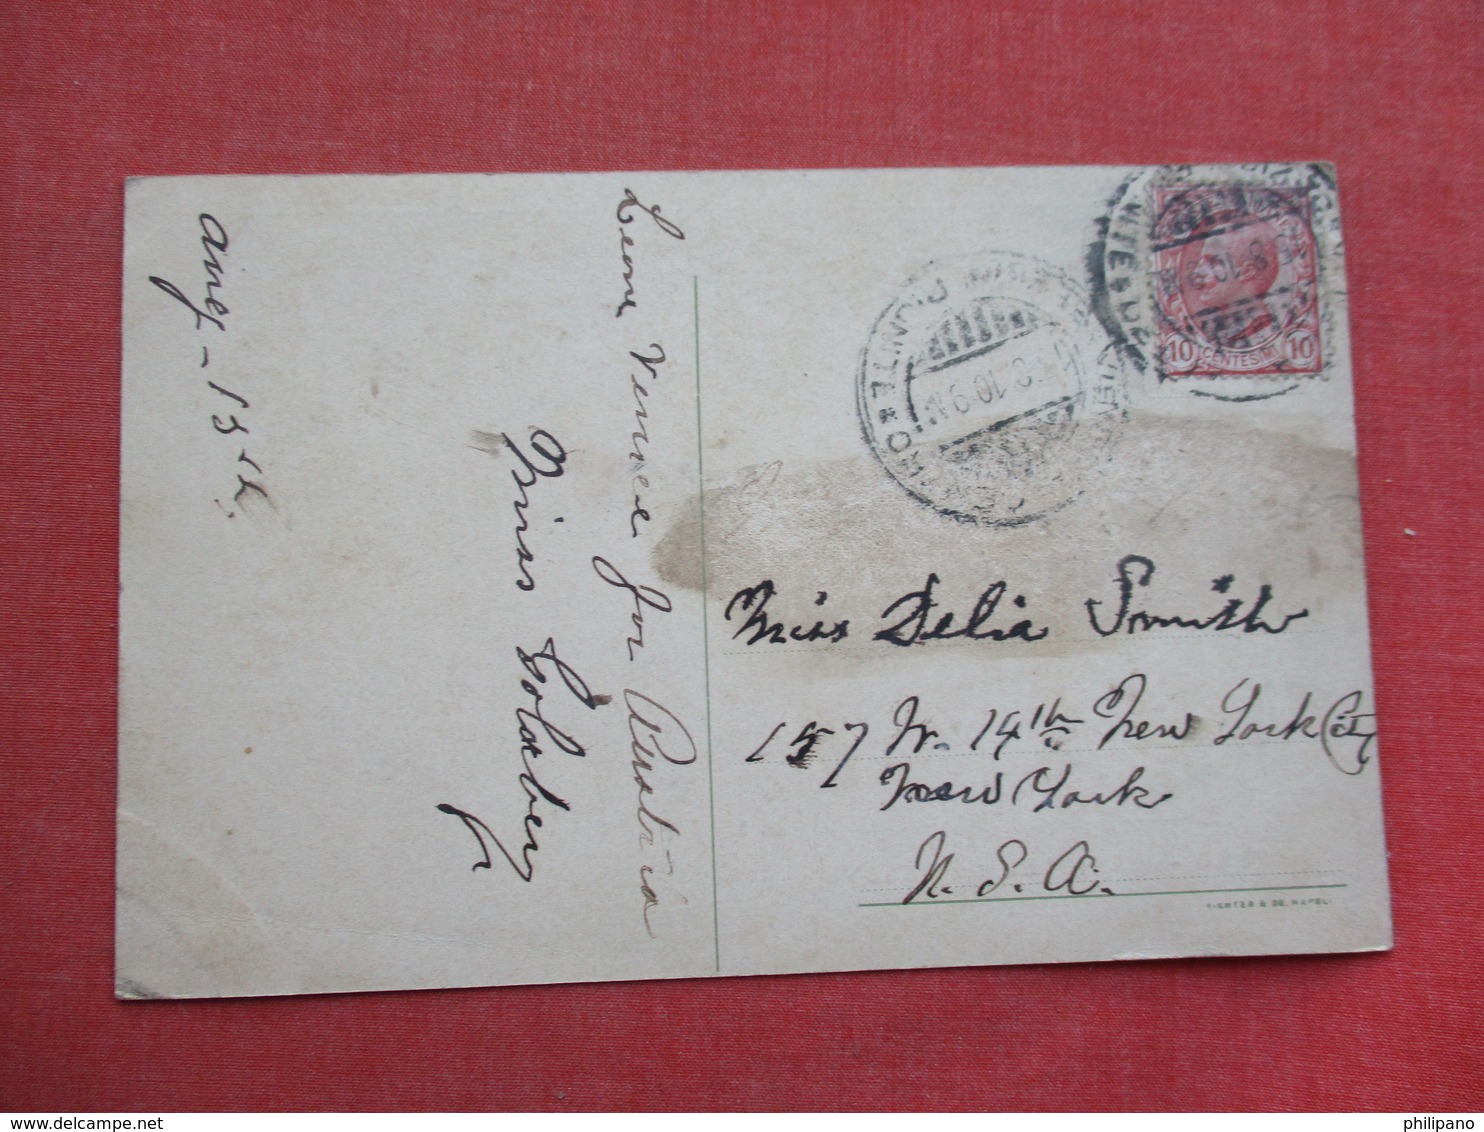 Aug - 13th.
Leave Venice for Austria
Miss Goldberg
10 CENTESIMI 10
Miss Delia Smith
157 W. 14th New York City
New York
U. S. A.
RICHTER & Co, NAPOLI
philipano
www.delcampe.net